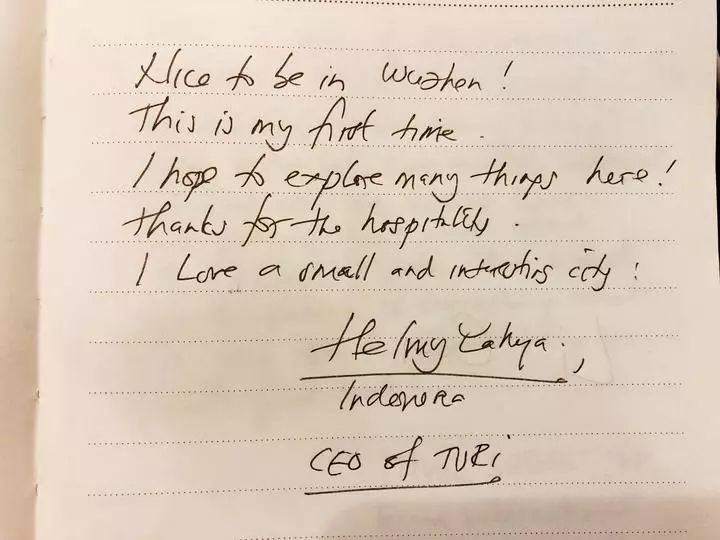 Nice to be in Wuzhen!
This is my first time.
I hope to explore many things here!
thanks for the hospitality.
I Love a small and interesting city!
Helmy Yahya.,
Indonesia
CEO of TVRi